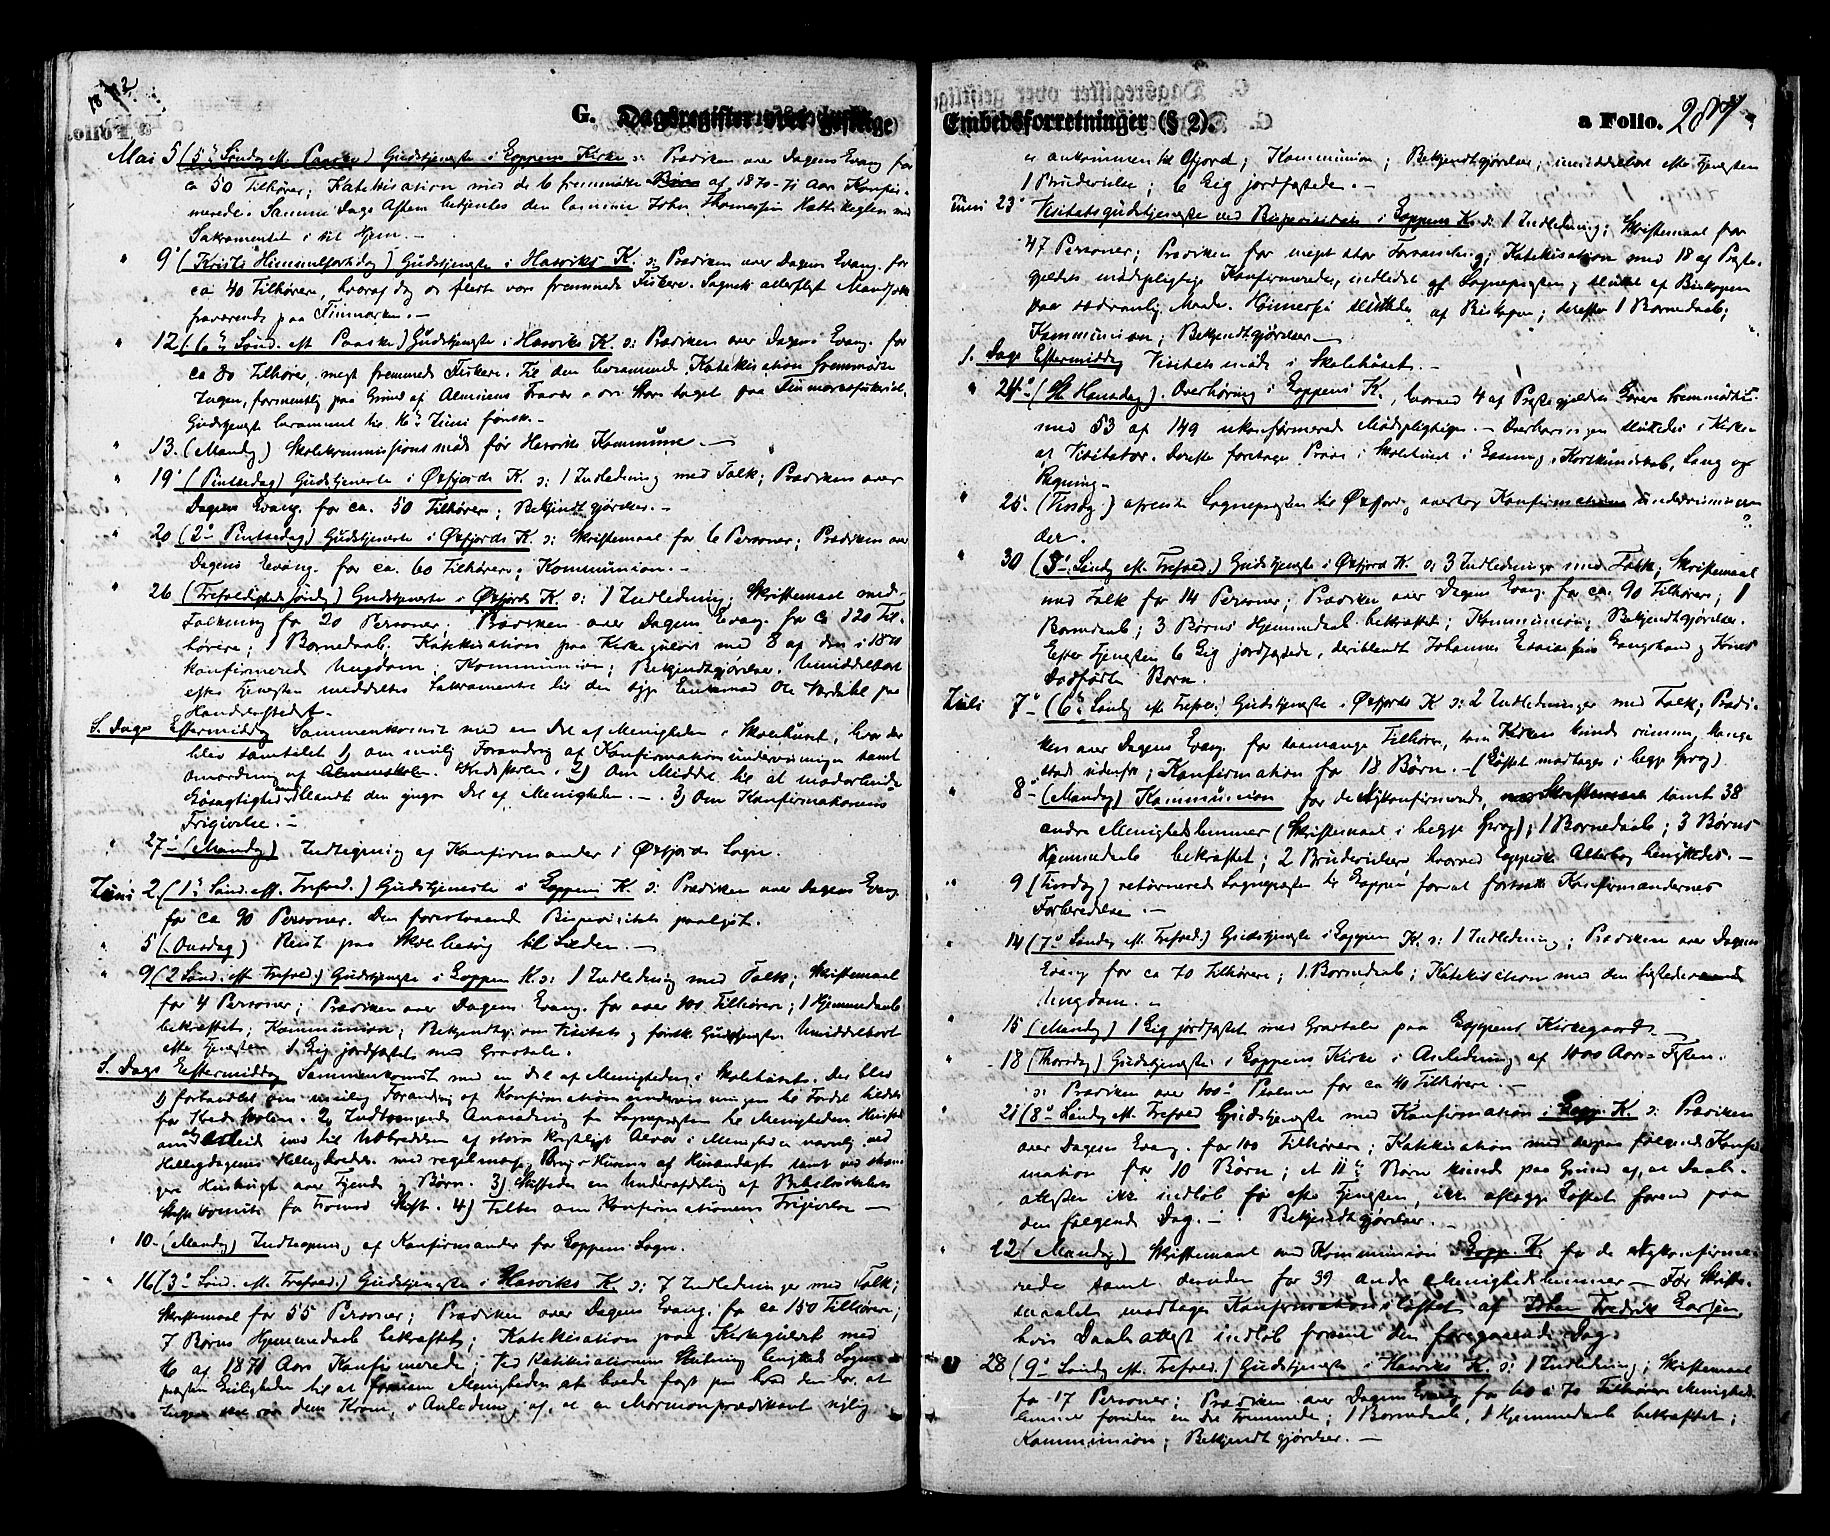 1872.
G. Dagsregister over geistlige
Mai 5 (5te Søndag eft. Paaske) Gudstjeneste i Loppens Kirke ɔ: Prædiken over Dagens Evang for
ca 50 Tilhører; Katekisation med de 6 fremmødte af 1870-71 Aars Konfir-
merede. Samme Dags Aften betjentes den John Thomassen med
Sakramentet i sit Hjem. -
" 9de (Kristi Himmelfartsdag) Gudstjeneste i Hasviks K. ɔ: Prædiken over Dagens Evang. for
ca 40 Tilhørere, hvoraf dog de fleste vare fremmede Fiskere. Sognets allerfleste Mandfolk
fraværende paa Finmarken. -
" 12 (6te Sønd. eft Paaske) Gudstjeneste i Hasviks K. ɔ: Prædiken over Dagens Evang. for
ca 80 Tilhører, mest fremmede Fiskere. Til den berammede Katekisation fremmødte
Ingen, formentlig paa Grund af Almuens Travelhed paa Finmarksfisket.
Gudstjeneste berammet til 16de Juni førstk. -
" 13. (Mandag) Skolekommissionsmøde for Hasviks Kommune. -
" 19de (Pintsedag) Gudstjeneste i Øxfjords K. ɔ: 1 Indledning med Talk; Prædiken over
Dagens Evang. for ca. 50 Tilhørere; Bekjendtgjørelser. -
" 20 (2den Pintsedag) Gudstjeneste i Øxfjords K. ɔ: Skriftemaal for 6 Personer; Prædiken over
Dagens Evang. for ca. 60 Tilhørere; Kommunion. -
" 26 (Trefoldighedssøndag) Gudstjeneste i Øxfjords K. ɔ: 1 Indledning; Skriftemaal med
Talkning for 20 Personer; Prædiken over Dagens Evang. for ca 120 Til-
hørere; 1 Barnedaab; Katekisation paa Kirkegulvet med 8 af den i 1871
konfirmerede Ungdom; Kommunion; Bekjendtgjørelser. Umiddelbart
efter Tjenesten meddeltes Sakramentet til den syge Enkemand Ole paa
Handelsstedet. -
S. Dags Eftermiddag Sammenkomst med en Del af Menigheden i Skolehuset, hvor der
blev samtalet 1) om mulig Forandring af Konfirmationsundervisningen samt
Omordning af Almueskolen. Kredsskolen. 2) Om Midler til at modarbeide
Løsagtigheden blandt den yngre Del af Menigheden. -. 3) Om Konfirmationens
Frigivelse. -
" 27de (Mandag) Indtegning af Konfirmander i Øxfjords Sogn.
Juni 2 (1ste Sønd. eft. Trefold.) Gudstjeneste i Loppens K. ɔ: Prædiken over Dagens Evang.
for ca 90 Personer. Den forestaaende Bispevisitats paalyst.
" 5 (Onsdag) Reist paa Skolebesøg til -
" 9 (2 Sønd. eft Trefold.) Gudstjeneste i Loppen K. ɔ: 1 Indledning med Talk; Skriftemaal
for 4 Personer; Prædiken over Dagens Evang. for over 100 Tilhørere; 1 Hjemmedaab
bekræftet; Kommunion; Bekjendtgj. om Visitats og førstk. Gudstjeneste. Umiddelbart
efter Tjenesten 1 Lig jordfæstet med Gravtale.
S. Dags Eftermiddag Sammenkomst med en Del af Menigheden i Skolehuset. Der blev
1) forhandlet om mulig Forandring af Konfirmationsundervisningen til Fordel
for Kredsskolen. 2) Indtrængende Anmodning fra Sognepresten til Menigheden
om Arbeid med til Udbredelse af større kristeligt Alvor i Menigheden navnlig ved
Helligdagenes Helligholdelse med regelmæssig Brug af Huusandagt samt ved
over Tjenere og Børn. 3) Stiftedes en Underafdeling af Bibelselskabet
for Tromsø Stift. 4) Taltes om Konfirmationens Frigivelse -
" 10. (Mandag) Indtegning af Konfirmander for Loppens Sogn.
" 16 (3die Sønd. eft. Trefold.) Gudstjeneste i Hasviks K. ɔ: 7 Indledninger med Talk;
Skriftemaal for 55 Personer; Prædiken over Dagens Evang. for ca 150 Tilhørere;
7 Børns Hjemmedaab bekræftet; Katekisation paa Kirkegulvet med
16 af 1871 Aars Konfirmerede; Ved Katekisationens Slutning Sogne-
presten Leiligheden til at formane Menigheden at holde fast paa hvad den har, at
Ingen skal røve dem Kronen, i Anledning af, at en Mormonprædikant nylig
Embedsforretninger (§ 2).
a Folio. 287
er ankommen til Øfjord; Kommunion; Bekjendtgjørelser; umiddelbart efter Tjenesten
1 Brudevielse; 6 Lig jordfæstede. -
Juni 23de Visitatsgudstjeneste ved Bispevisitas i Loppens K. ɔ: 1 Indledning; Skriftemaal for
47 Personer; Prædiken for meget stor Forsamling; Katekisation med 18 af Præste-
gjeldets mødepligtige Konfirmerede, indledet af Sognepresten, sluttet af Biskopen
paa sædvanlig Maade. Høimessen sluttedes af Biskopen; derefter 1 Barnedaab;
Kommunion; Bekjendtgjørelser -
S. Dags Eftermiddag Visitatsmøde i Skolehuset. -
" 24de (St Hansdag). Overhøring i Loppens K., hvorved 4 af Præstegjeldets Lærere fremmødte
med 53 af 149 ukonfirmerede Mødepligtige. - Overhøringen sluttedes i Kirken
af Visitator. Derefter foretages Prøve i Skolehuset i Læsning, Kortkundskab, Sang og
Regning. -
" 25. (Tirsdag) afreiste Sognepresten til Øxfjord, overtog Konfirmationsundervisningen
der.
" 30 (5te Søndag eft. Trefold.) Gudstjeneste i Øxfjord K. ɔ: 3 Indledninger med Talk; Skriftemaal
med Talk for 14 Personer; Prædiken over Dagens Evang. for ca. 90 Tilhørere; 1
Barnedaab; 3 Børns Hjemmedaab bekræftet; Kommunion; Bekjendtgjørelser.
Efter Tjenesten 6 Lig jordfæstede, deriblandt Johannes og Kones
dødfødte Barn.
Juli 7de (6te Søndag eft. Trefold.) Gudstjeneste i Øxfjords K ɔ: 2 Indledninger med Talk; Prædi-
ken over Dagens Evang. for saamange Tilhørere, som Kirken kunde rumme, mange
stod udenfor; Konfirmation for 18 Børn. - (Løftet modtages i begge Sprog).
" 8de (Mandag) Kommunion for de Nykonfirmerede, samt 38
andre Menighedslemmer (Skriftemaal i begge Sprog); 1 Barnedaab; 3 Børns
Hjemmedaab bekræftet; 2 Brudevielser, hvorved Loppens Alterbog benyttedes. -
" 9 (Tirsdag) returnerede Sognepresten til Loppen for at fortsætte Konfirmandernes
Forberedelse. -
" 14 (7de Søndag eft. Trefold.) Gudstjeneste i Loppen K. ɔ: 1 Indledning; Prædiken over Dagens
Evang for ca 70 Tilhørere; 1 Barnedaab; Katekisation med den tilstedeværende
Ungdom. -
" 15 (Mandag) 1 Lig jordfæstet med Gravtale paa Loppens Kirkegaard. -
" 18 (Thorsdag) Gudstjeneste i Loppens Kirke i Anledning af 1000 Aars-Festen.
ɔ: Prædiken over 100de Psalme for ca 40 Tilhørere. -
" 21 (8de Søndag eft. Trefold Gudstjeneste med Konfirmation i Lopp. K. ɔ: Prædiken
over Dagens Evang. for 100 Tilhørere; Katekisation med derpaa følgende Konfir-
mation for 10 Børn; et 11te Barn kunde paa Grund af, at Daabs-
attesten ikke indløb før efter Tjenesten, ikke aflægge Løftet førend paa
den følgende Dag. - Bekjendtgjørelser. -
" 22 (Mandag) Skriftemaal med Kommunion i Lopp. K. for de nykonfirme-
rede samt desuden for 39 andre Menighedslemmer - Før Skrifte-
maalet modtages Konfirmationsløftet af Johan Fredrik Larsen,
hvis Daabsattest indløb førent den foregaaende Dag.
" 28 (9de Søndag eft. Trefold.) Gudstjeneste i Hasviks K. ɔ: 1 Indledning; Skriftemaal
for 17 Personer; Prædiken over Dagens Evang for 60 à 70 Tilhørere Menigheds-
lemmer foruden en Del Fremmede; 1 Barnedaab, 1 Hjemmedaab bekræftet;
Kommunion; Bekjendtgjørelser. -